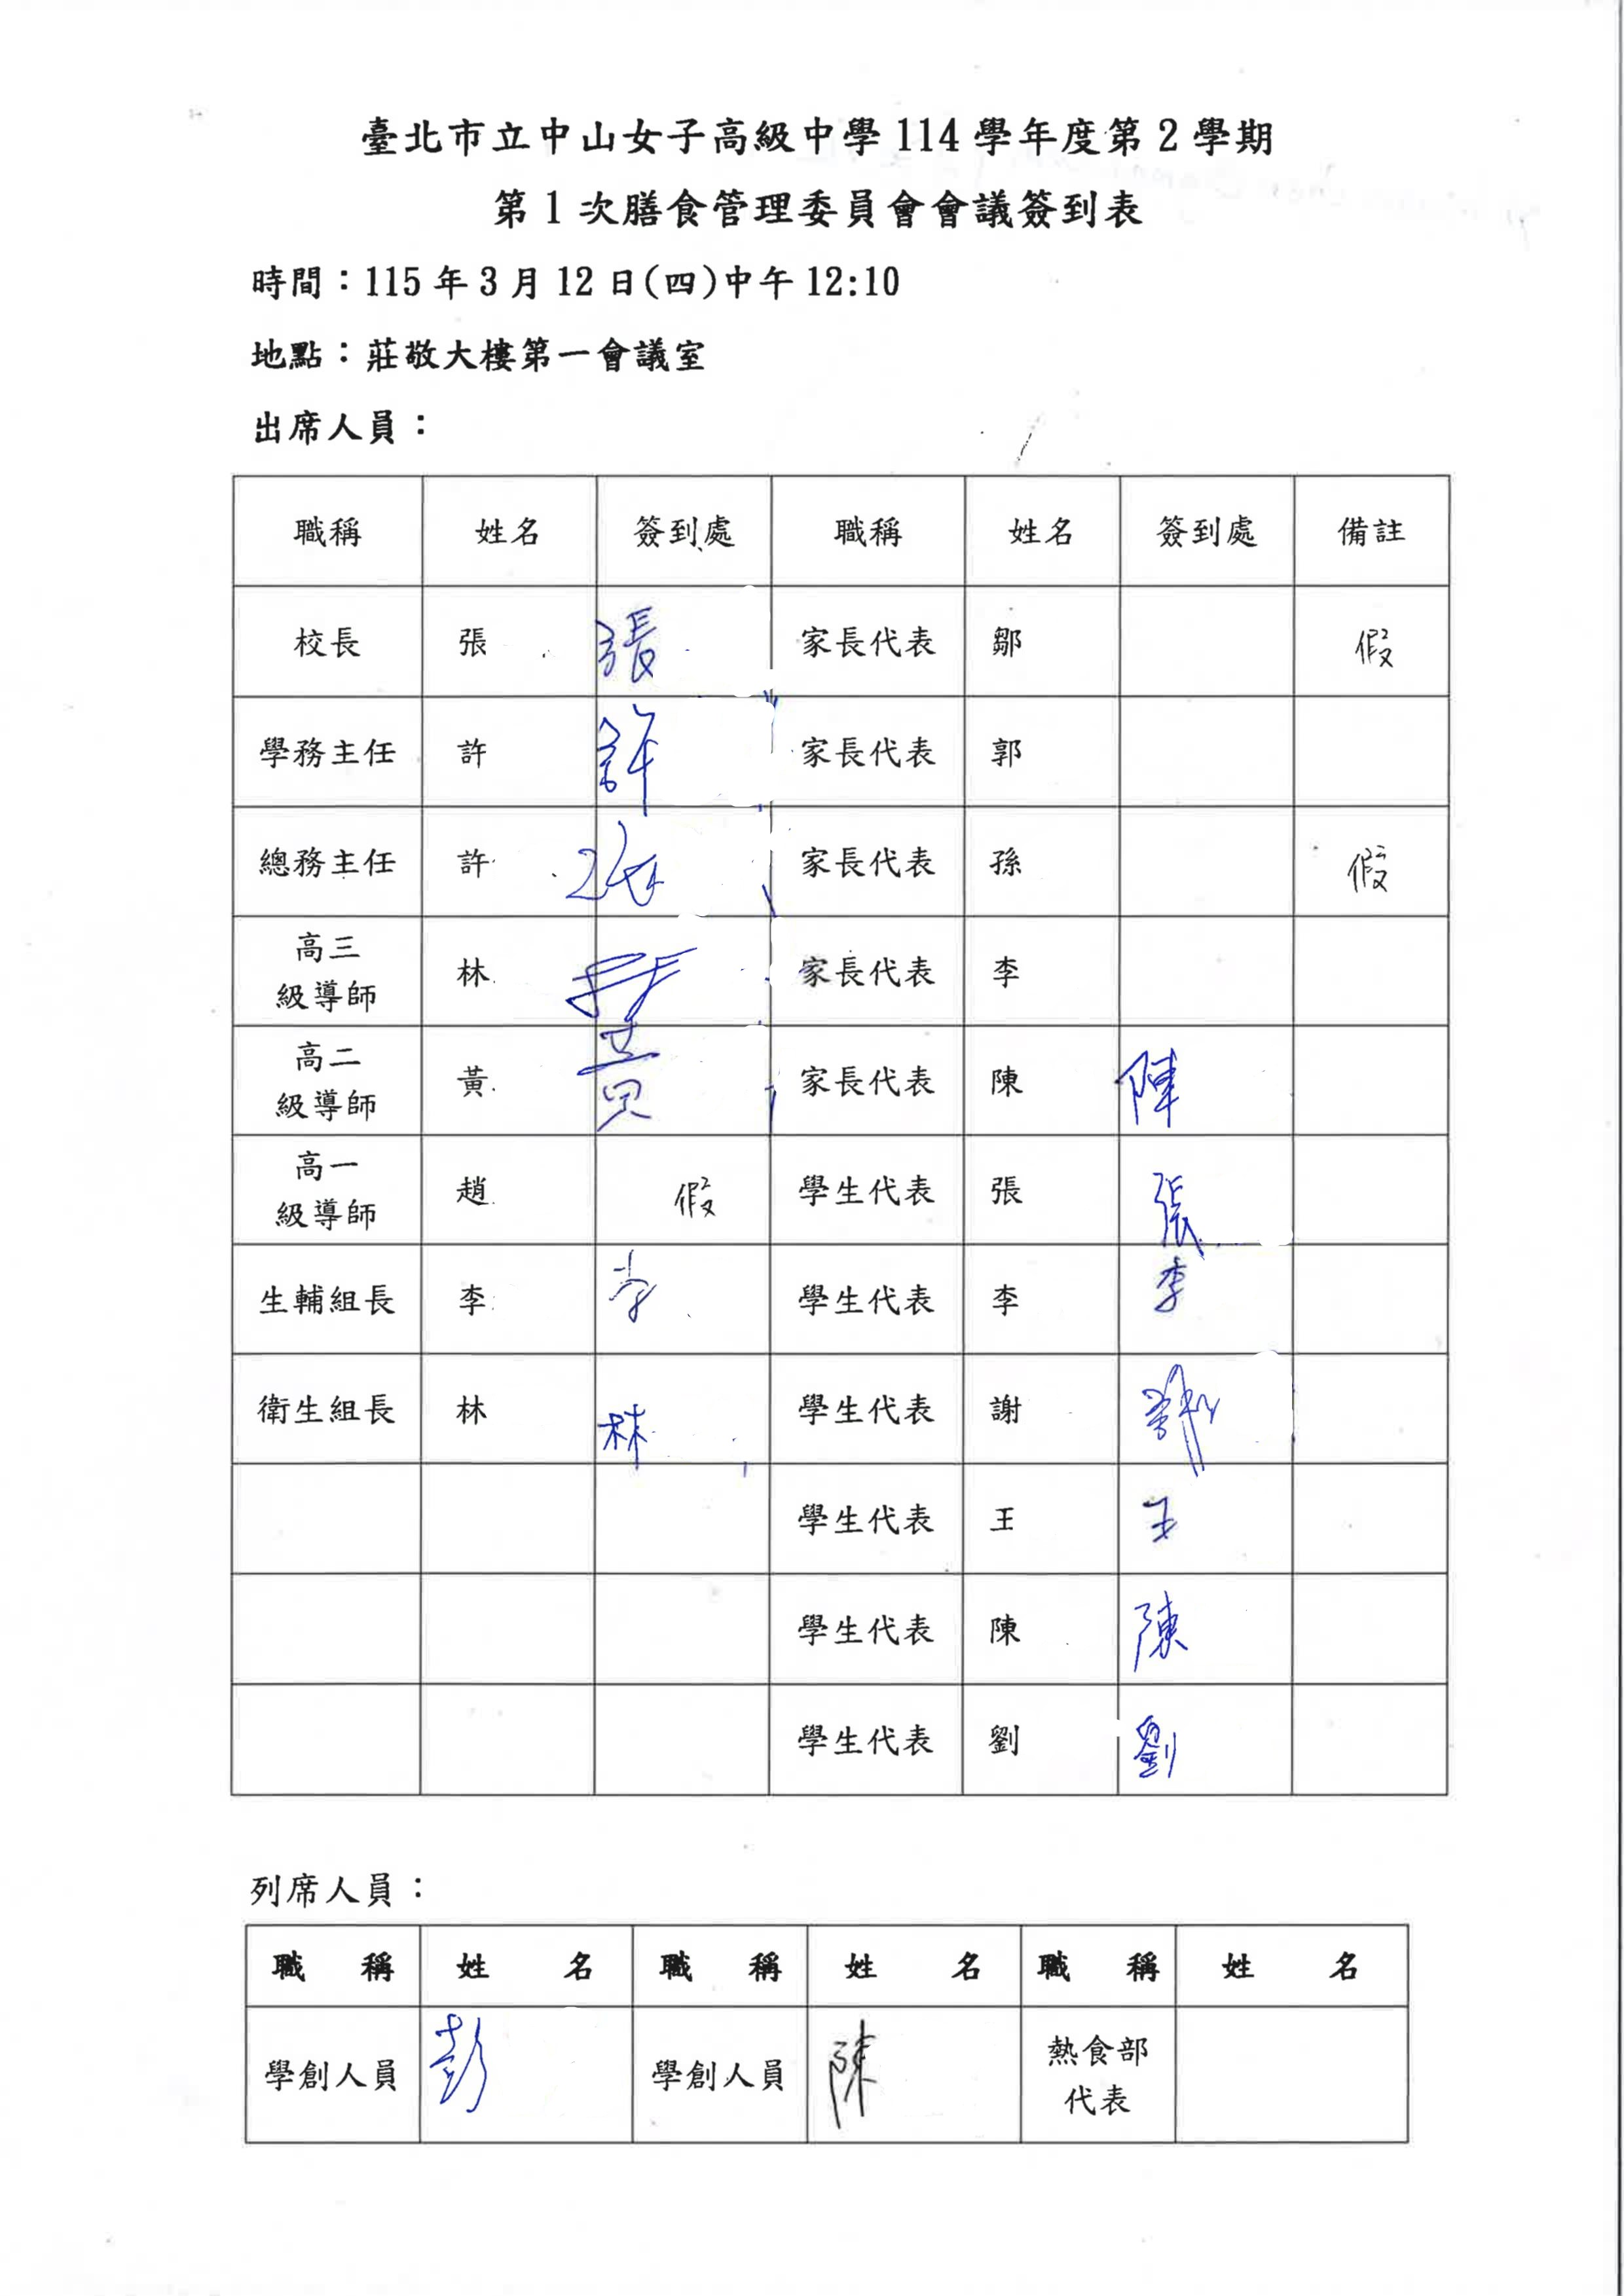 臺北市立中山女子高級中學 114 學年度第 2 學期
第 1 次膳食管理委員會會議簽到表
時間：115 年 3 月 12 日(四)中午 12:10
地點：莊敬大樓第一會議室
出席人員：
職稱 姓名 簽到處 職稱 姓名 簽到處 備註
校長 張 張 家長代表 鄒 假
學務主任 許 許 家長代表 郭
總務主任 許 家長代表 孫 假
高三
級導師 林 家長代表 李
高二
級導師 黃 黃 家長代表 陳 陳
高一
級導師 趙 假 學生代表 張 張
生輔組長 李 李 學生代表 李 李
衛生組長 林 林 學生代表 謝 謝
學生代表 王 王
學生代表 陳 陳
學生代表 劉 劉
列席人員：
職稱 姓名 職稱 姓名 職稱 姓名
學創人員 彭 學創人員 陳 熱食部
代表